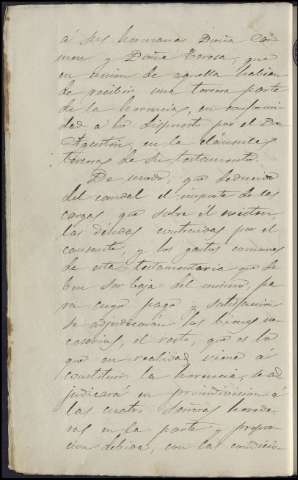 á sus hermanas Doña Car-
men y Doña Teresa, que
en union de aquella habian
de recibir una tercera parte
de la herencia, en conformi-
dad a lo dispuesto por el Don
Agustin, en la cláusula
tercera de su testamento.
De modo, que deducido
del caudal el importe de las
cargas que sobre él existen,
las deudas contraidas por el
causante, y los gastos comunes
de esta testamentaria que de-
ben ser baja del mismo, pa-
ra cuyo pago y satisfacion
se adjudicarán los bienes ne-
cesarios, el resto, que es lo
que en realidad viene á
constituir la herencia, se ad-
judicará en proindivision á
las cuatro Señoras herede-
ras en la parte y propor-
cion debidas, con la condicion